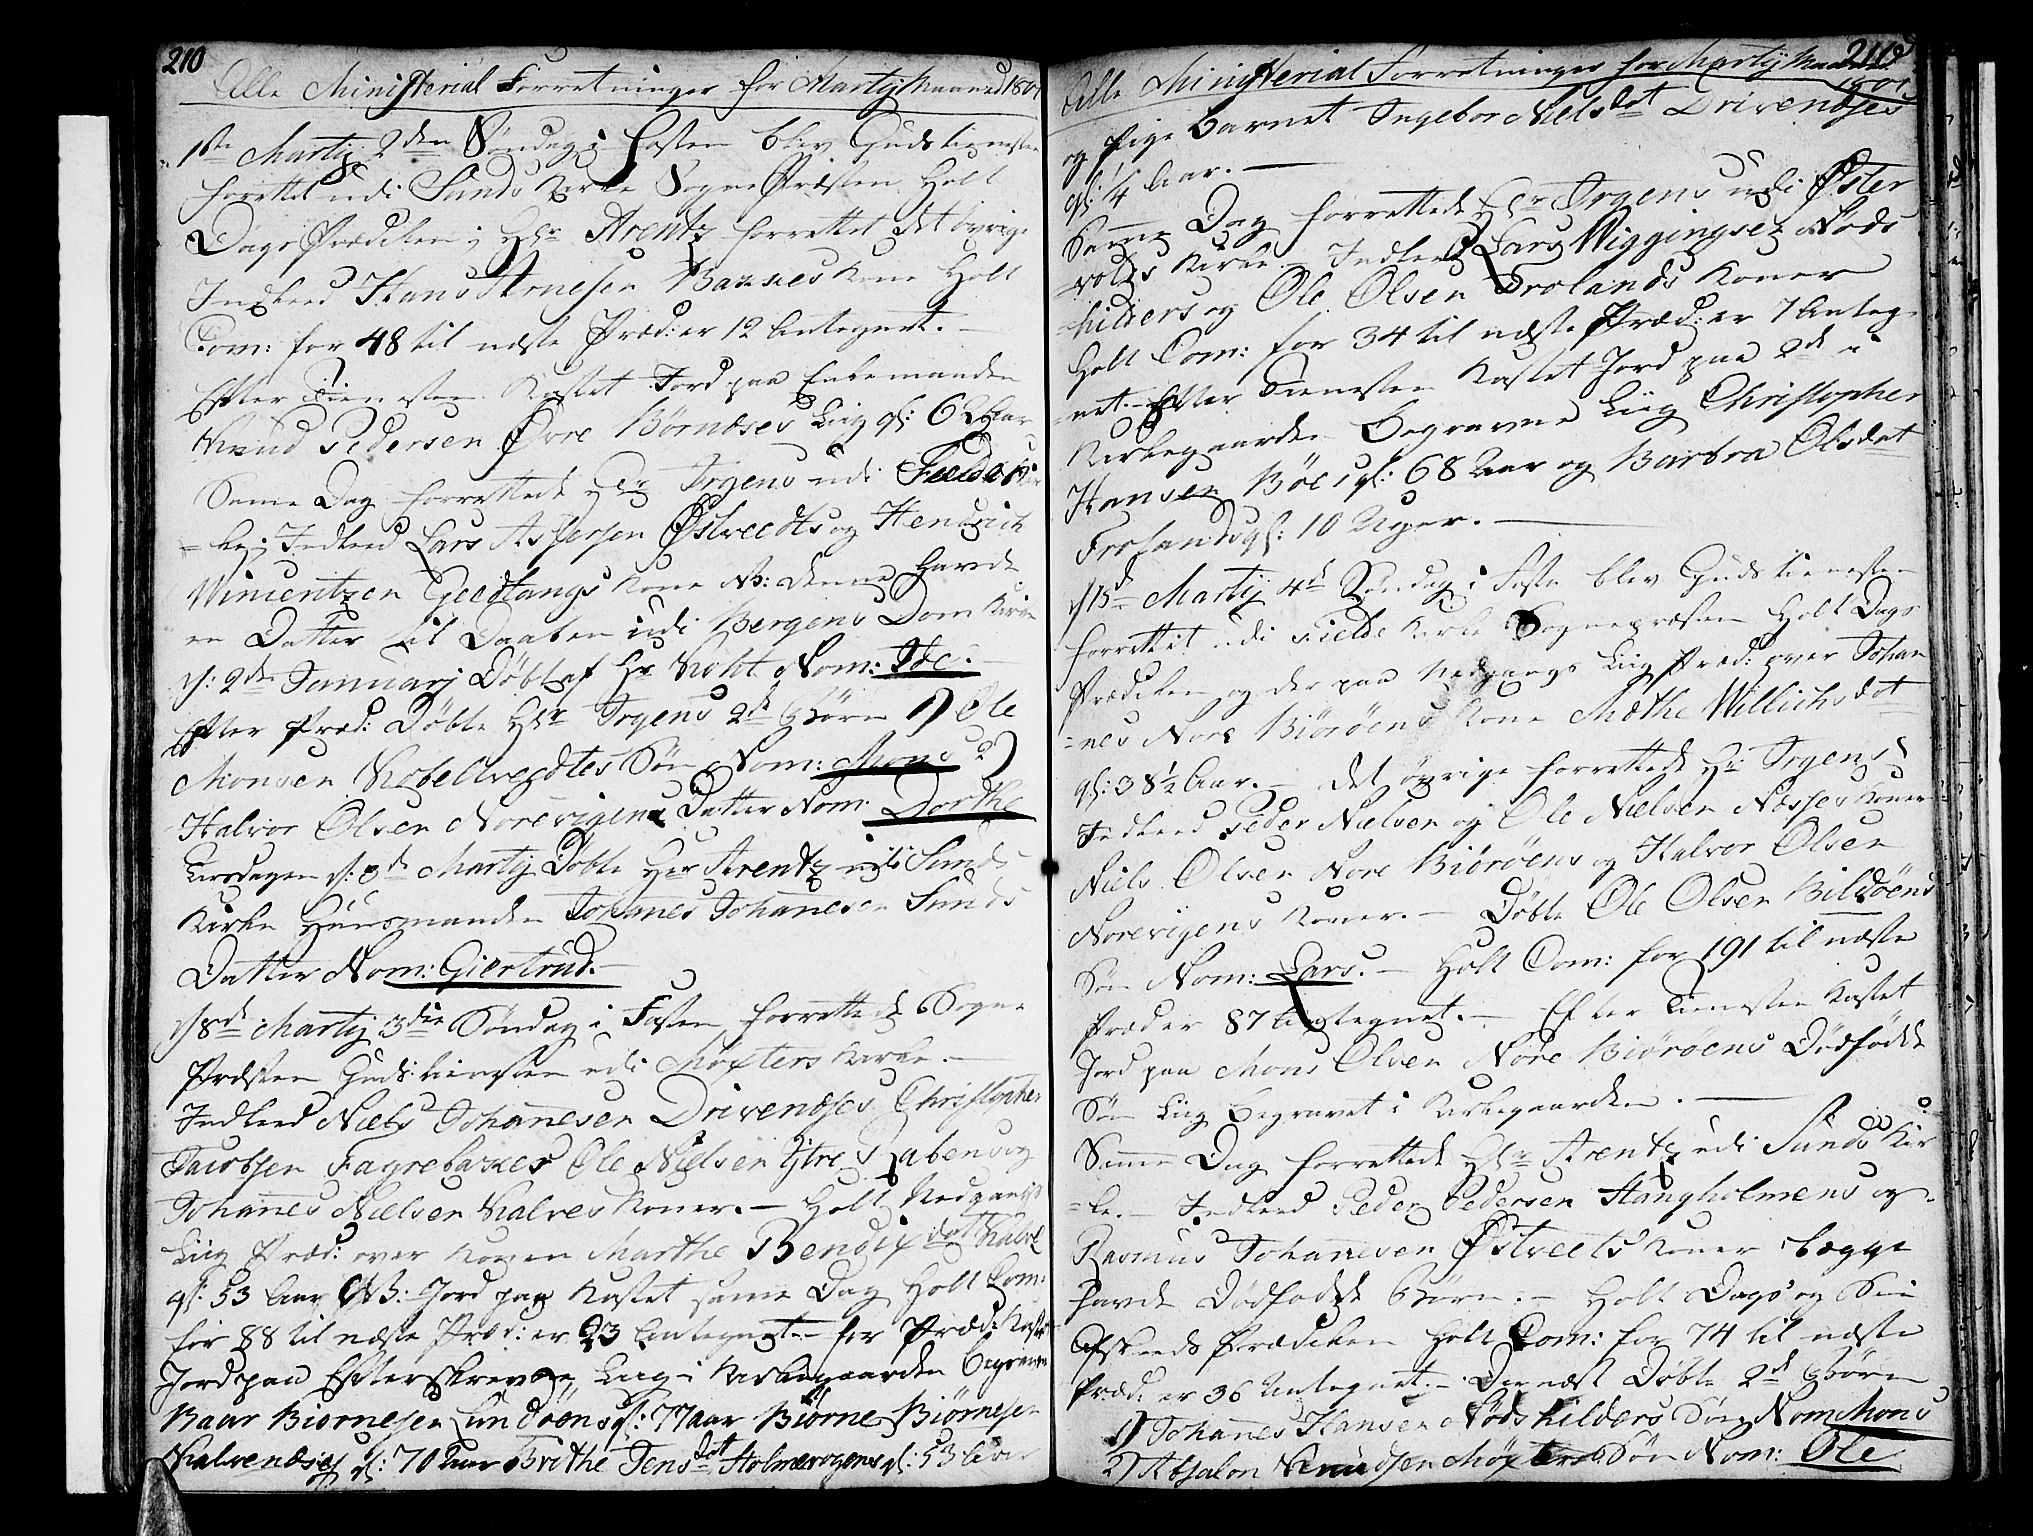 210
Alle Ministerial Forretninger for Martij Maaned 1801
1ste Martij 2den Søndag i Fasten blev Gudstienesten
forrettet udi Sunds Kirke Sogne Præsten Holt
Dags Prædiken; Hr. Arentz forrettet det øvrige
Indleed Hans Arnesen Bakkes Kone Holt
Com: for 48 til næste Præd: er 12 Antegnet.
Efter Tienesten Kastet Jord paa Enkemanden
Knud Pedersen Øvre Børnæses Liig gl: 62 Aar
Same Dag forrettede Hr Irgens udi Fielde Kir
=ke; Indleed Lars Assersen Østveedts og Hendrich
Wincentzen Geedtangs Kone NB: denne havde
en Datter til Daaben udi Bergens Dom Kirke
d: 2de Januarj Døbt af Hr Nom:
Efter Præd: Døbte Hr Irgens 2de Børn 1) Ole
Monsen Kobeltvegdtes Søn Nom: Mons 2)
Halvor Olsen Norevigens Datter Nom: Dorthe
Tirsdagen d: 3de Martij Døbte Hr Arentz udi Sunds
Kirke Huusmanden Johanes Johanesen Sunds
Datter Nom: Giertrud.
d 8de Martij 3die Søndag i Fasten forrettede Sogne
Præsten Gudstienesten udi Møxters Kirke.
Indleed Niels Johanesen Drivenæses Christopher
Jacobsen Fagrebakkes Ole Nielsen Ytre Rabens og
Johanes Nielsen Kalves Koner. Holt Nedgangs
Liig Præd: over Konen Marthe Bendixdat Kalve
gl: 53 Aar NB: Jord paa Kastet same Dag Holt Com:
for 88 til næste Præd: er 23 Antegnet. for Præd: Kastet
Jord paa Efterskrevne Liig i Kirkegaarden Begravne
Baar Biørnesen Lundøens gl: 77 aar Biørne Biørnesen
Kalvenæses gl: 70 Aar Brithe Jensdat Holmevogens gl: 53 Aar
211
Alle Ministerial Forretninger for Martij Maaned
1801
og Pige Barnet Ingebor Nielsdat Drivenæses
gl: 1/4 Aar.
Same Dag forrettede Hr Irgens udi Øster
=volds Kirke Indleed Lars Wiggingsen Nøds
=kilders og Ole Olsen Trolands Koner
Holt Com: for 34 til næste Præd: er 7 Anteg
=net. Efter Tienesten Kastet Jord paa 2de i
Kirkegaarden Begravne Liig Christopher
Hansen Böe gl: 68 Aar og Barbra Olsdat
Trolands gl: 10 Uger.
d 15de Martij 4de Søndag i Faste blev Gudstienesten
forrettet udi Fielde Kirke Sognepræsten Holt Dags
Prædiken og der paa Nedgangs Liig Præd: over Johan
=nes Nore Biørøens Kone Mæthe Willichsdat
gl: 38 1/2 Aar. det øvrige forrettede Hr Irgens
Indleed Peder Nielsen og Ole Nielsen Næsses Koner
Niels Olsen Nore Biørøens og Halvor Olsen
Norevigens Koner. Døbte Ole Olsen Bildøens
Søn Nom: Lars. Holt Com: for 191 til næste
Præd er 87 Antegnet. Efter Tienesten Kastet
Jord paa Mons Olsen Nore Biørøens Dødfødde
Søn Liig begravet i Kirkegaarden.
Same Dag forrettede Hr Arentz udi Sunds Kir
=ke. Indleed Peder Pedersen Stangholmens og
Rasmus Johanesen Østveets Koner begge
havde Dødfødde Børn. Holt Dags og Sin
Afskeeds Prædiken Holt Com: for 74 til næste
Præd: er 36 Antegnet. Dernæst Døbte 2de Børn
1) Johanes Hansen Nødskilders Søn Nom Mons
2) Absalon Knudsen Møxters Søn Nom: Ole